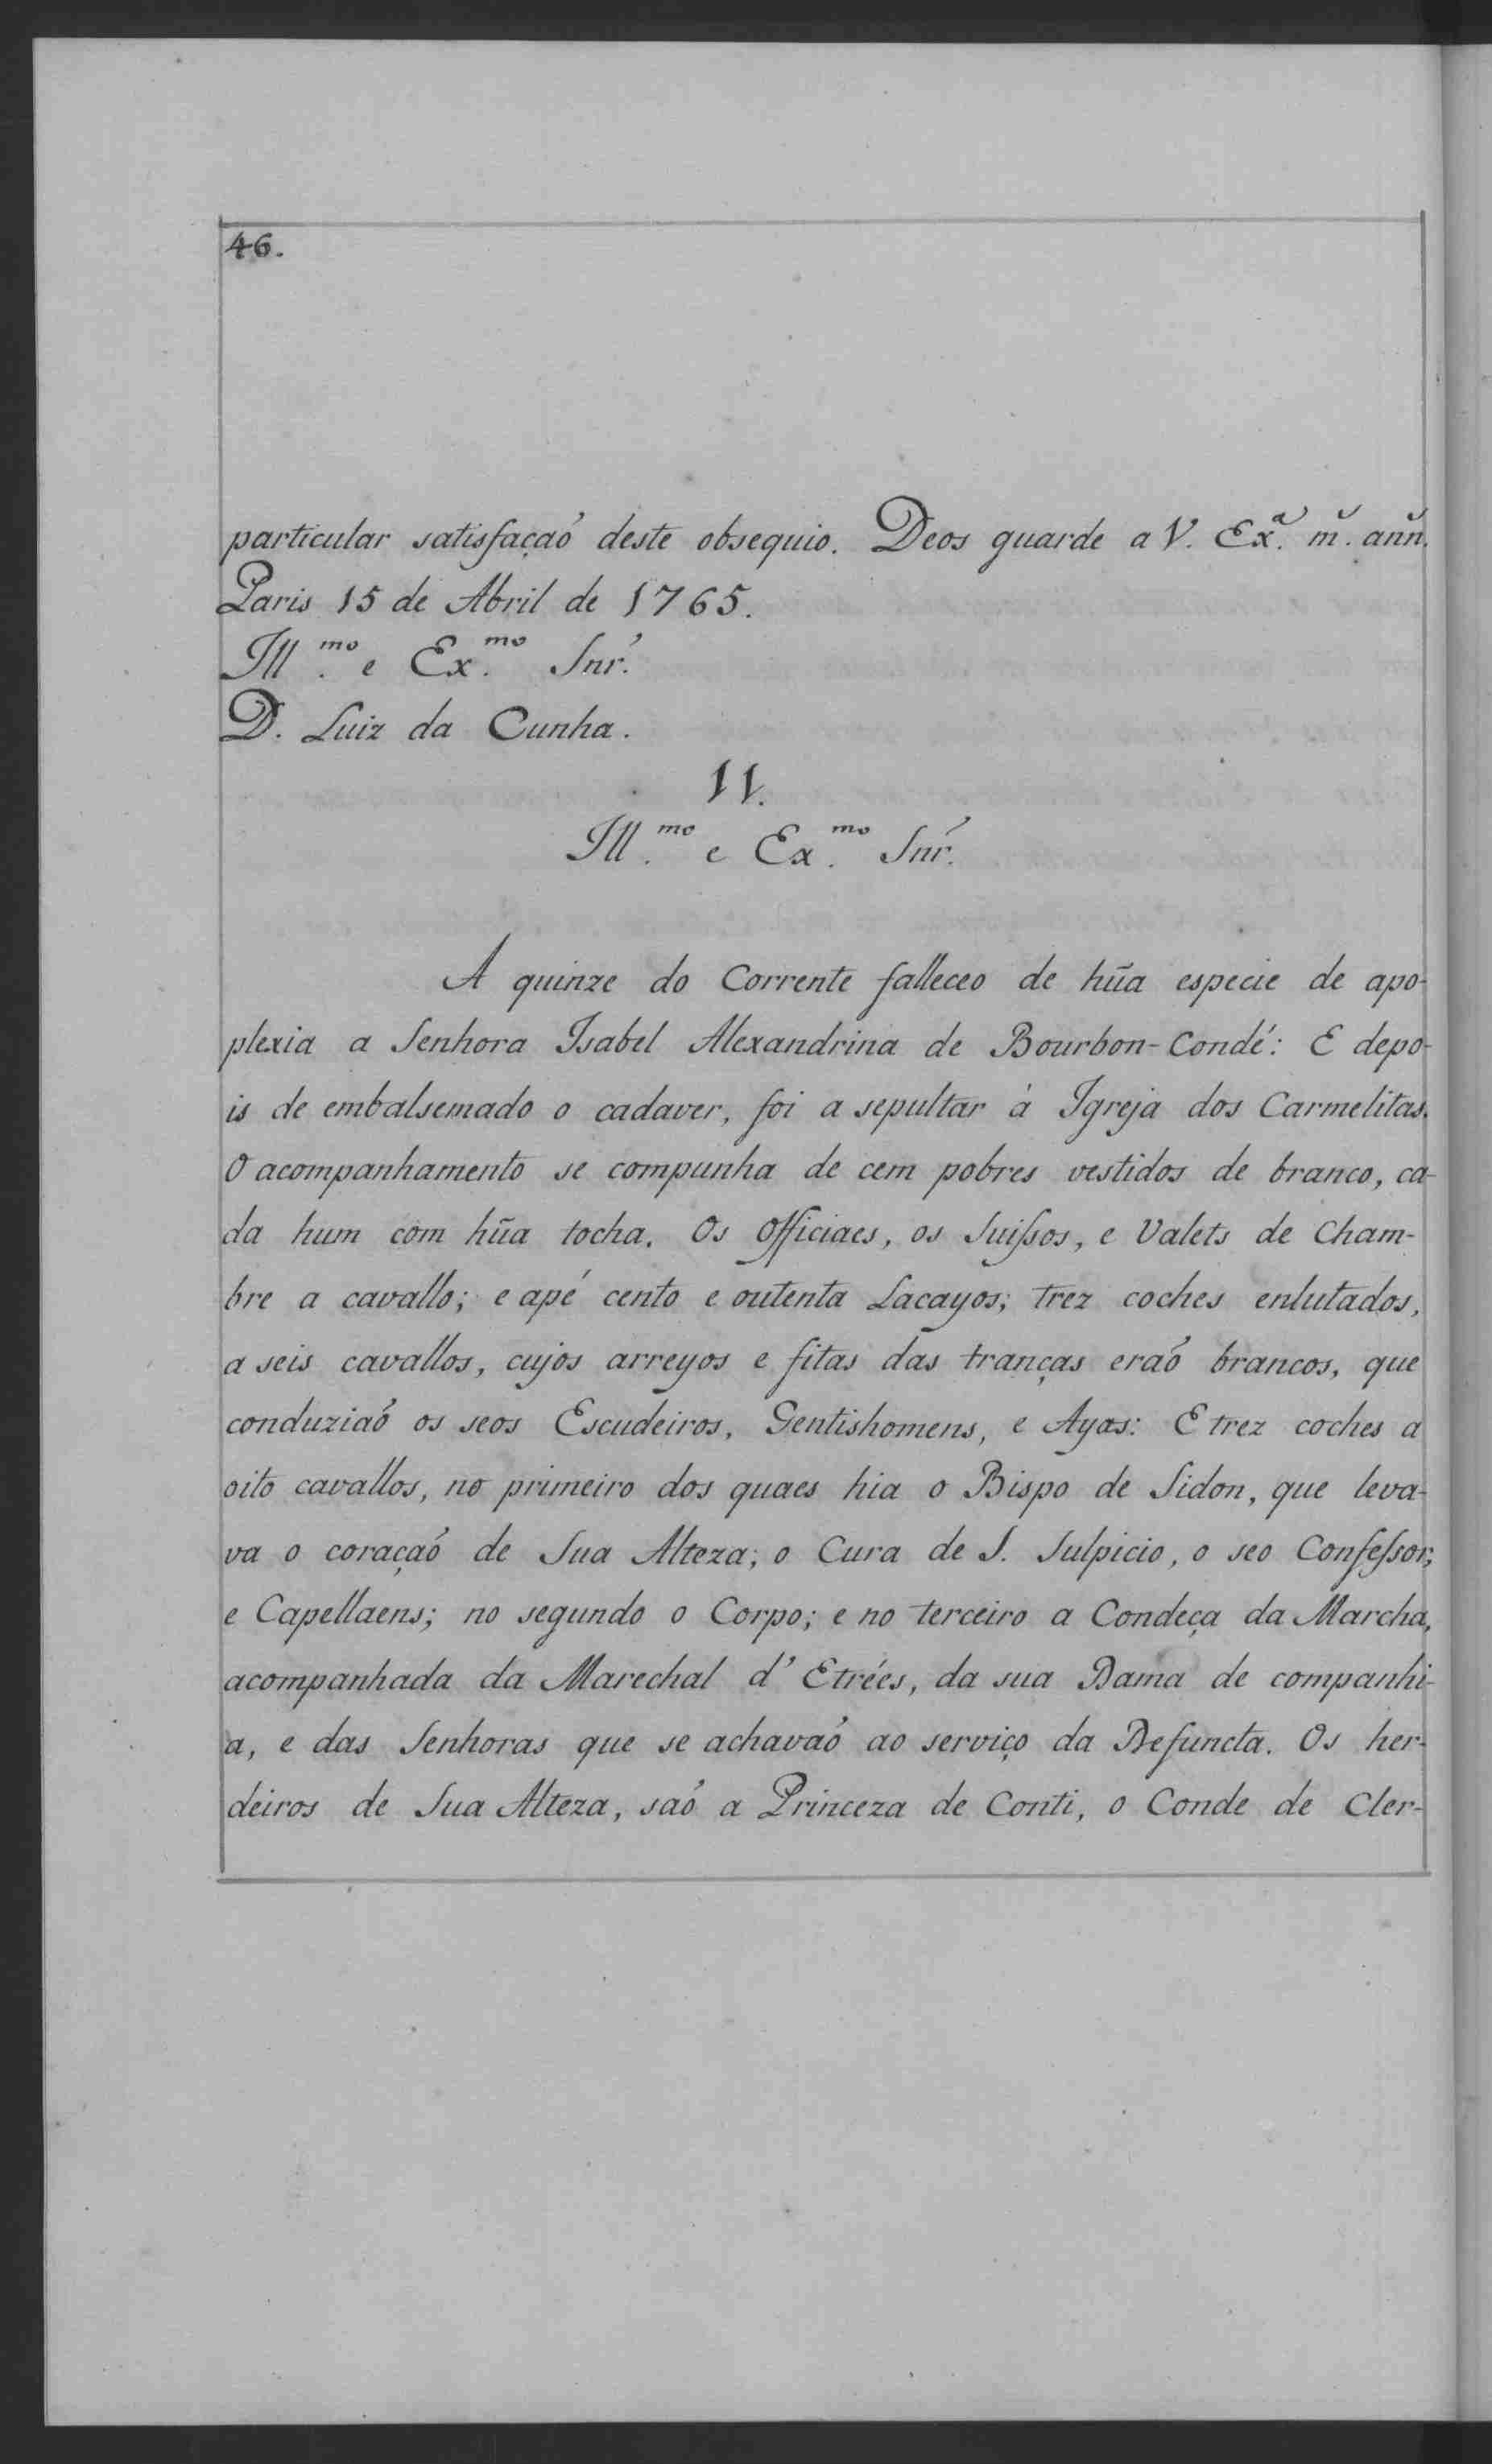 46.
particular satisfaçaõ deste obsequio. Deos guarde a V. Ex.ª m̃. ann̆.
Paris 15 de Abril de 1765.
Ill.mo e Ex.mo Snr.
D. Luiz da Cunha.
11.
Ill.mo e Ex.mo Snr.
A quinze do Corrente falleceo de hũa especie de apo-
plexia a Senhora Isabel Alexandrina de Bourbon-Condé: E depo-
is de embalsemado o cadaver, foi a sepultar á Igreja dos Carmelitas.
O acompanhamento se compunha de cem pobres vestidos de branco, ca-
da hum com hũa tocha. Os Officiaes, os Suissos, e Valets de Cham-
bre a cavallo; e apé cento e outenta Lacayos; trez coches enlutados,
a seis cavallos, cujos arreyos e fitas das tranças eraó brancos, que
conduziaó os seos Escudeiros, Gentishomens, e Ayas: E trez coches a
oito cavallos, no primeiro dos quaes hia o Bispo de Sidon, que leva-
va o coraçaó de Sua Alteza; o Cura de S. Sulpicio, o seo Confessor;
e Capellaens; no segundo o Corpo; e no terceiro a Condeça da Marcha,
acompanhada da Marechal d' Etrées, da sua Dama de companhi-
a, e das Senhoras que se achavaó ao serviço da Defuncta. Os her-
deiros de Sua Alteza, saó a Princeza de Conti, o Conde de Cler-